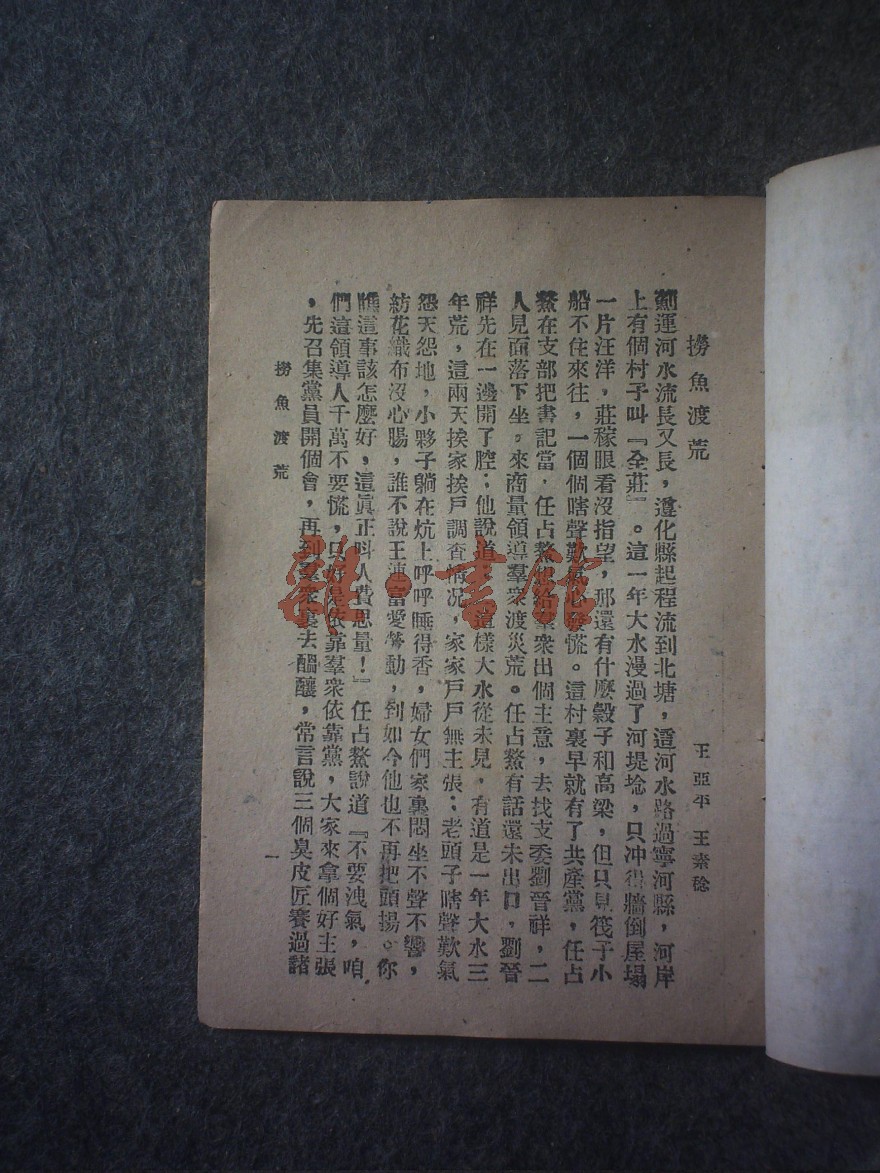 撈魚渡荒
王亞平 王素稔
薊運河水流長又長，遵化縣起程流到北塘，這河水路過寧河縣，河岸
上有個村子叫『全莊』。這一年大水漫過了河堤埝，只冲得牆倒屋塌
一片汪洋，莊稼眼看沒指望，那還有什麼穀子和高梁，但只見筏子小
船不住來往，一個個嗐聲歎氣心發慌。這村裏早就有了共產黨，任占
鰲在支部把書記當，任占鰲 羣衆出個主意，去找支委劉晉祥，二
人見面落下坐，來商量領導羣衆渡災荒。任占鰲有話還未出口，劉晉
祥先在一邊開了腔；他說道『這樣大水從未見，有道是一年大水三
年荒，這兩天挨家挨戶調查情況，家家戶戶無主張；老頭子嗐聲歎氣
怨天怨地，小夥子躺在炕上呼呼睡得香，婦女們家裏悶坐不聲不響，
紡花織布沒心腸，誰不說王連富愛勞動，到如今他也不再把頭揚。你
瞧這事該怎麼好，這眞正叫人費思量！』任占鰲說道『不要洩氣，咱
們這領導人千萬不要慌，只好是依靠羣衆依靠黨，大家來拿個好主張
，先召集黨員開個會，再到羣衆裏去醞釀，常言說三個臭皮匠賽過諸
撈魚渡荒
一
雜·書館